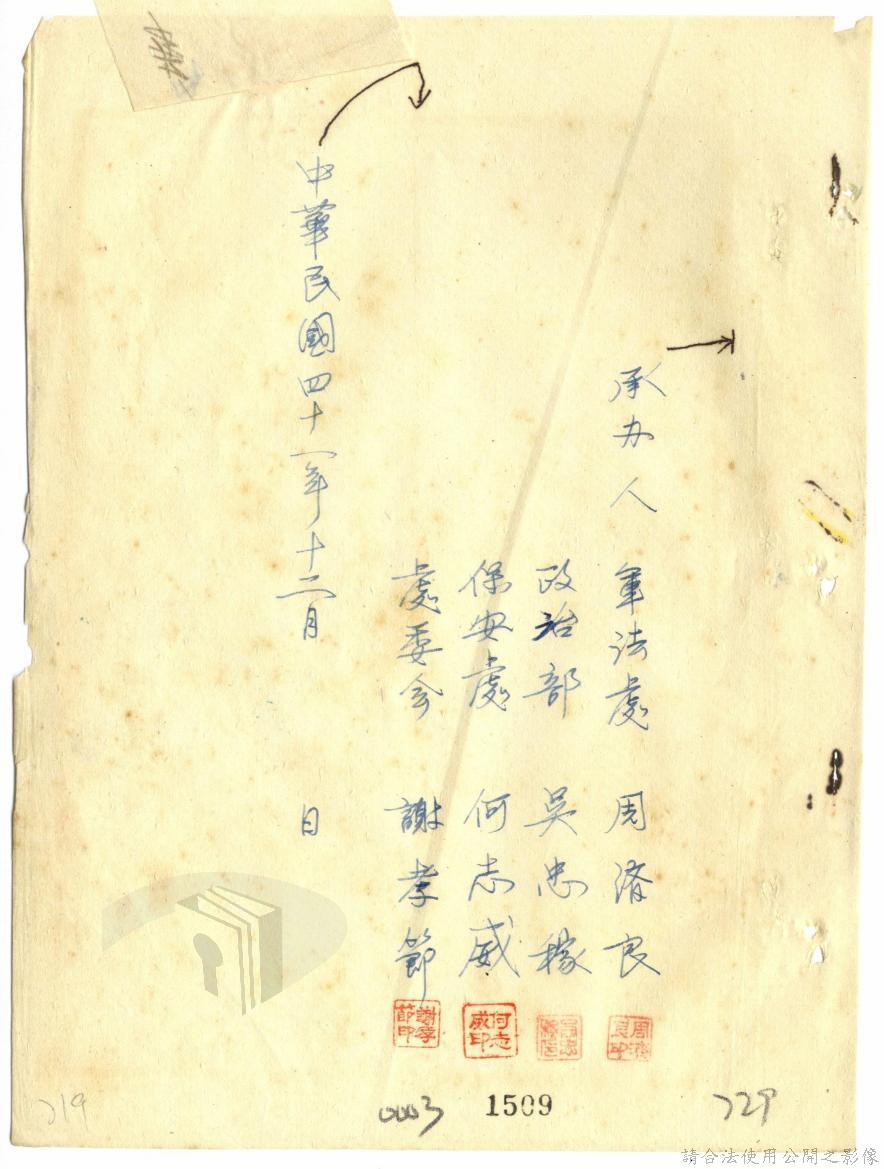 承办人 軍法處 周濟良
政治部 吳忠稼
保安處 何志威
處委会 謝孝節
中華民國四十一年十二月 日
周濟良印
何志威印
謝孝節印
719
0003
1509
729
請合法使用公開之影像